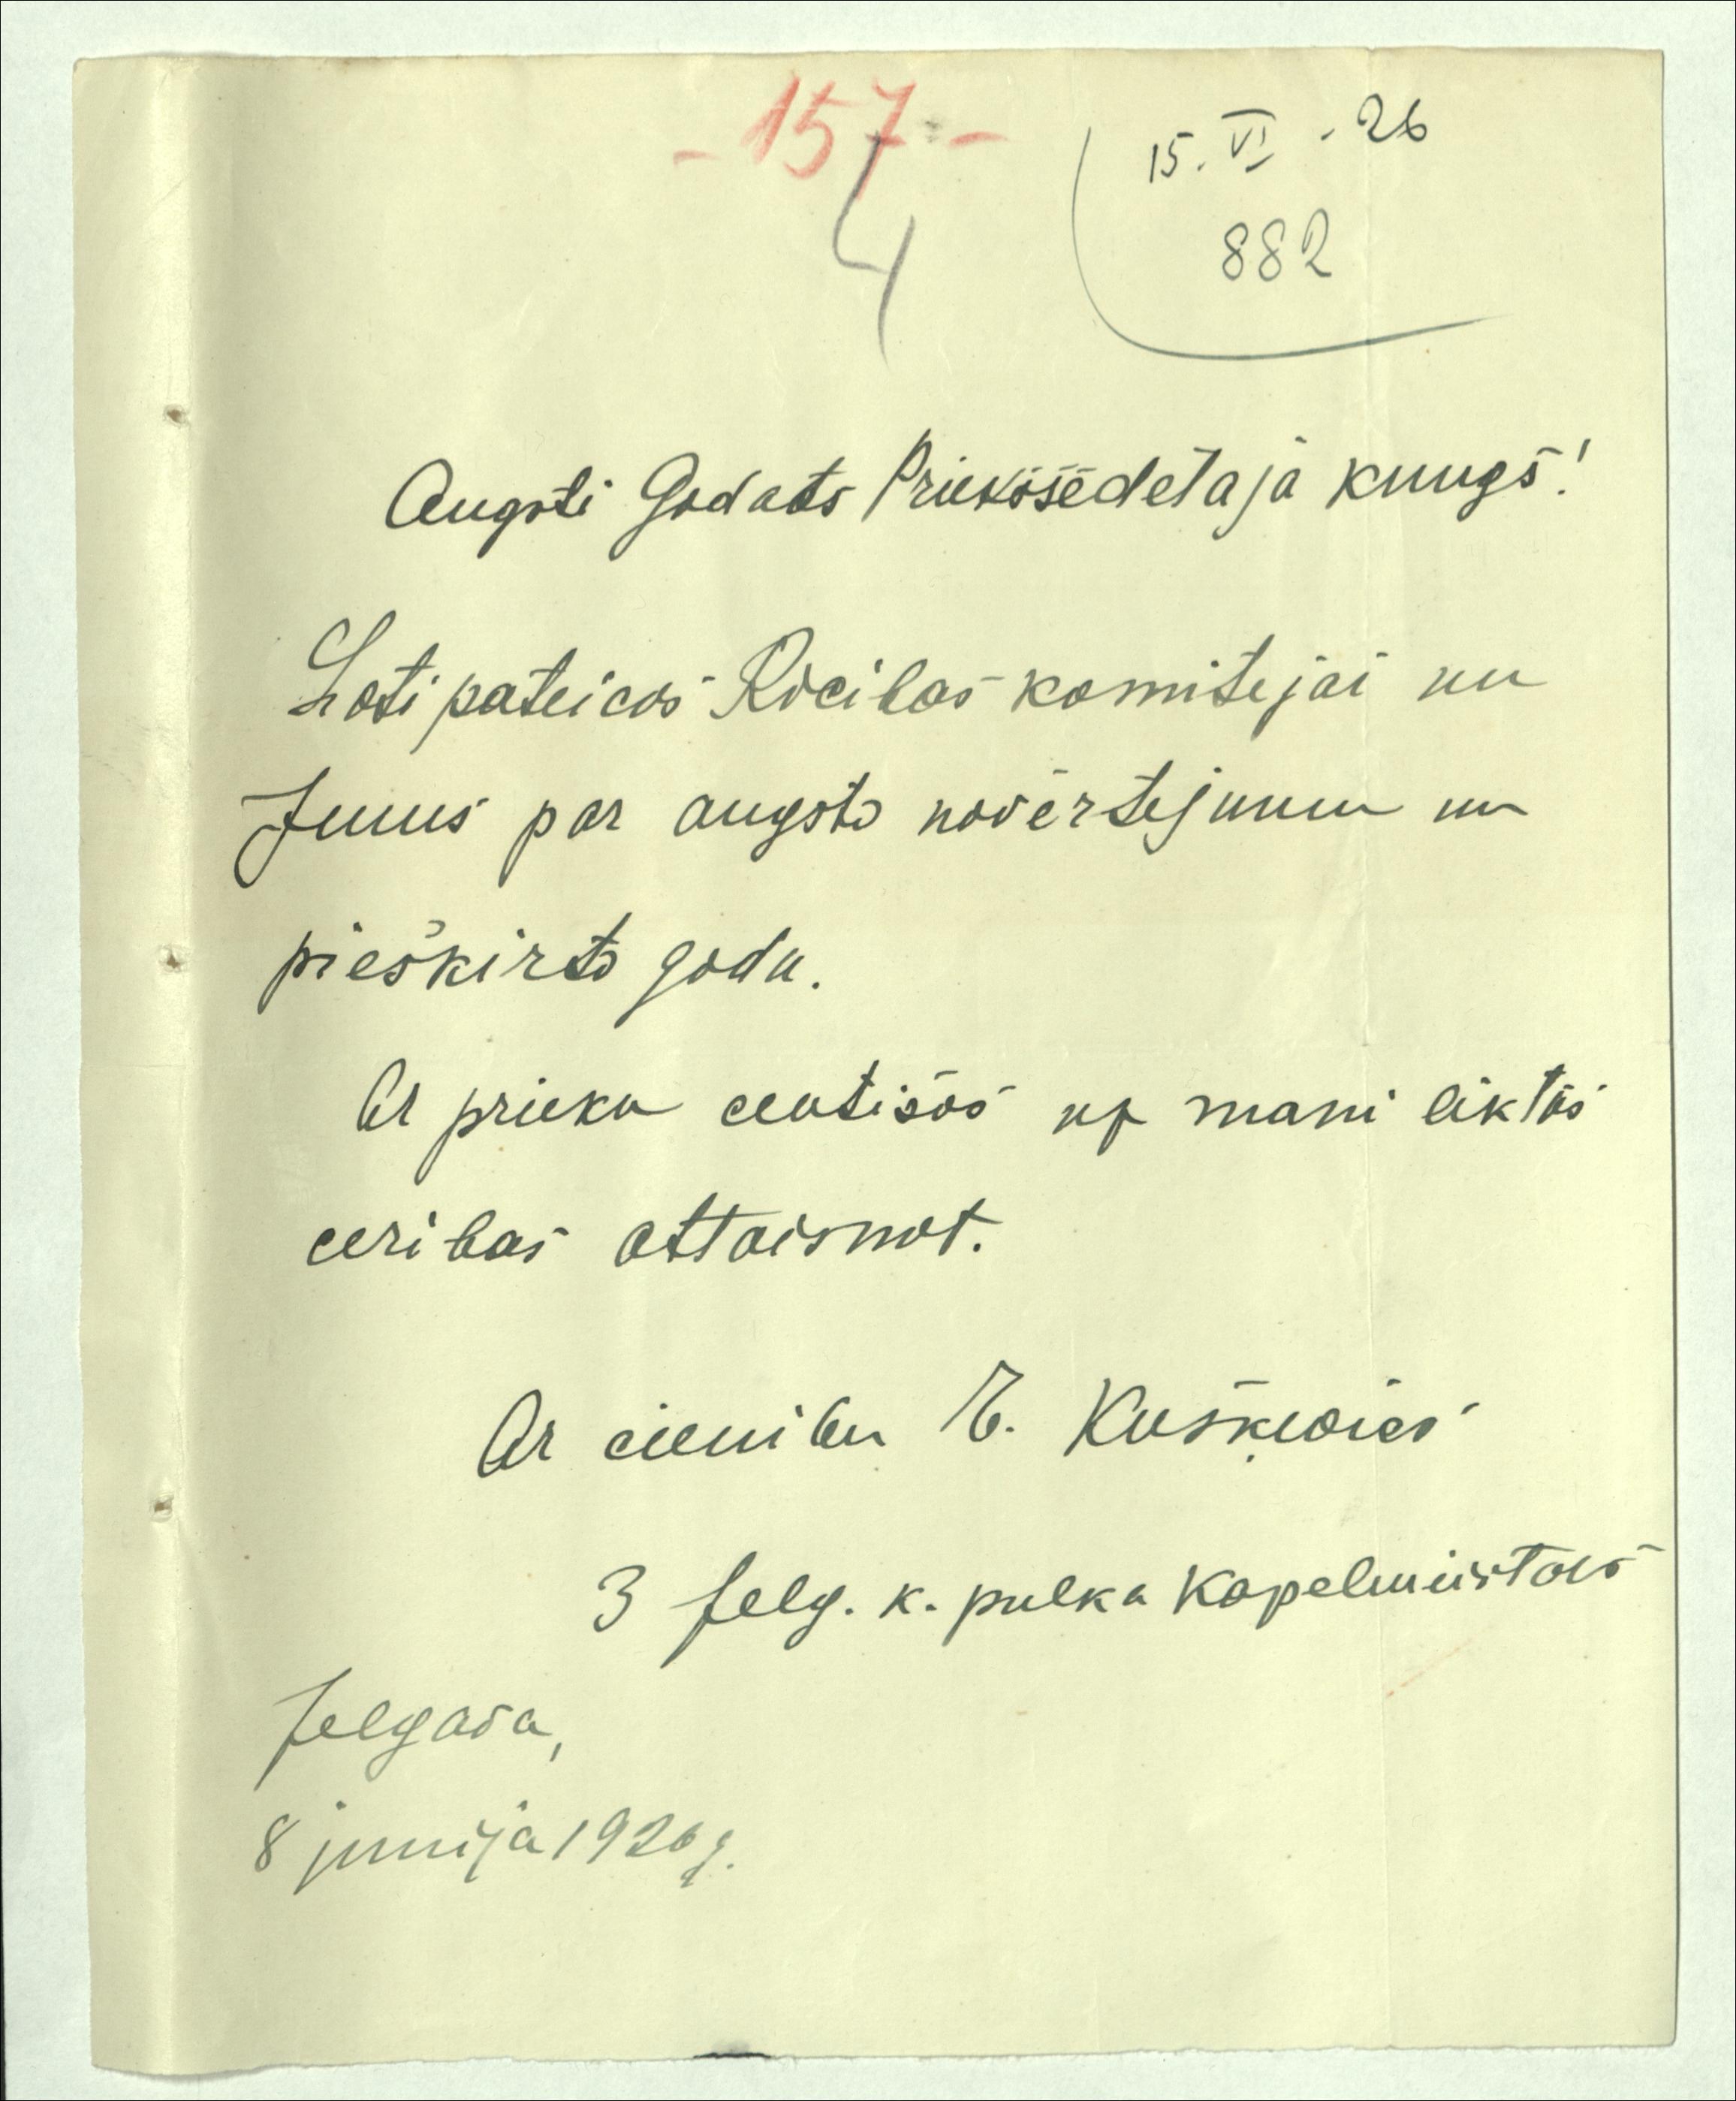 - 157 -
4
15. VI - 26
882
Augsti Godats Priekšsēdētāja kungs!
Ļoti pateicos Rīcības komitejai un
Jums par augsto novērtejumu un
piešķirto godu.
Ar prieku centīšos uz mani liktās
cerības attaisnot.
Ar cienību
3 Jelg. k. pulka Kapelmeistars
Jelgava,
8 junija 1926 g.